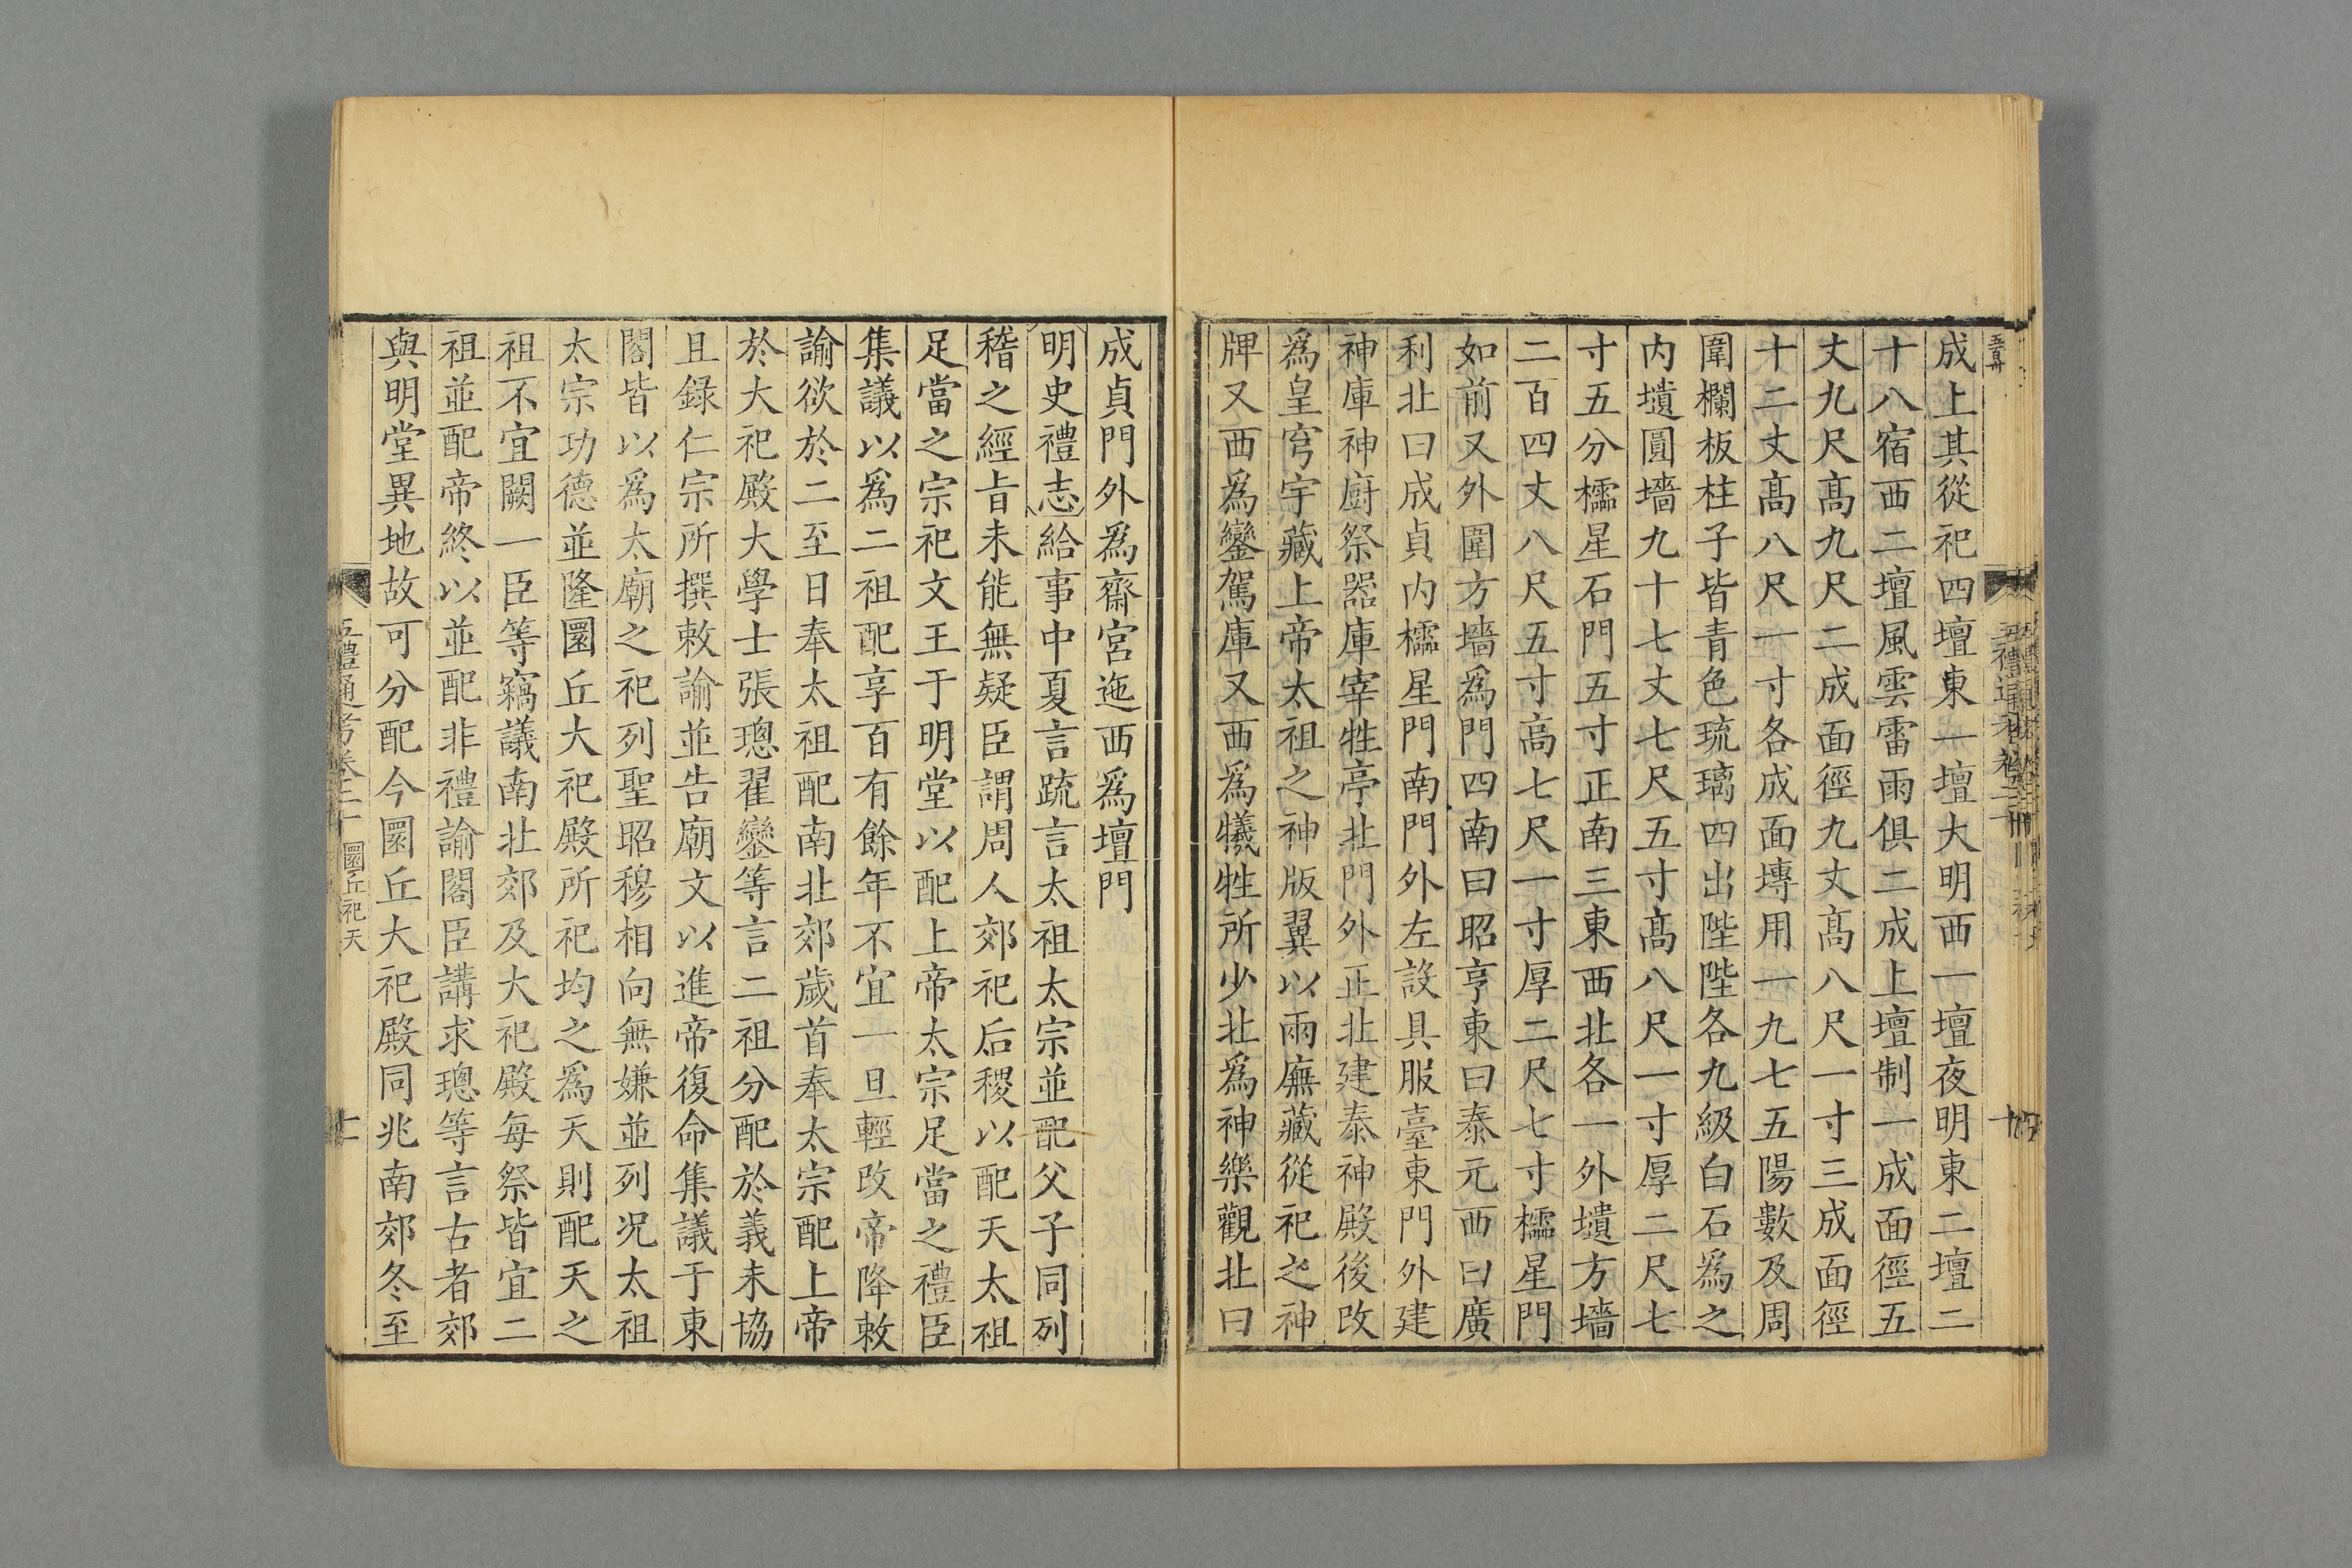 成上其從祀四壇東一壇大明西一壇夜明東二壇二
十八宿西二壇風雲雷雨俱二成上壇制一成面徑五
丈九尺髙九尺二成面徑九丈髙八尺一寸三成面徑
十二丈髙八尺一寸各成面塼用一九七五陽數及周
圍欄板柱子皆青色琉璃四出陛陛各九級白石爲之
内壝圓墻九十七丈七尺五寸髙八尺一寸厚二尺七
寸五分櫺星石門五寸正南三東西北各一外壝方墻
二百四丈八尺五寸高七尺一寸厚二尺七寸櫺星門
如前又外圍方墻爲門四南曰昭亨東曰泰元西曰廣
利北曰成貞内櫺星門南門外左設具服臺東門外建
神庫神廚祭器庫宰牲亭北門外正北建泰神殿後改
爲皇穹宇藏上帝太祖之神版翼以兩廡藏從祀之神
牌又西爲鑾駕庫又西爲犧牲所少北爲神樂觀北曰
成貞門外爲齋宮迤西爲壇門
明史禮志給事中夏言疏言太祖太宗並配父子同列
稽之經㫖未能無疑臣謂周人郊祀后稷以配天太祖
足當之宗祀文王于明堂以配上帝太宗足當之禮臣
集議以爲二祖配享百有餘年不宜一旦輕改帝降敕
諭欲於二至日奉太祖配南北郊歲首奉太宗配上帝
於大祀殿大學士張璁翟鑾等言二祖分配於義未協
且録仁宗所撰敕諭並告廟文以進帝復命集議于東
閣皆以爲太廟之祀列聖昭穆相向無嫌並列况太祖
太宗功德並隆圜丘大祀殿所祀均之爲天則配天之
祖不宜闕一臣等竊議南北郊及大祀殿每祭皆宜二
祖並配帝終以並配非禮諭閣臣講求璁等言古者郊
與明堂異地故可分配今圜丘大祀殿同兆南郊冬至
五禮通考卷二十 圜丘祀天